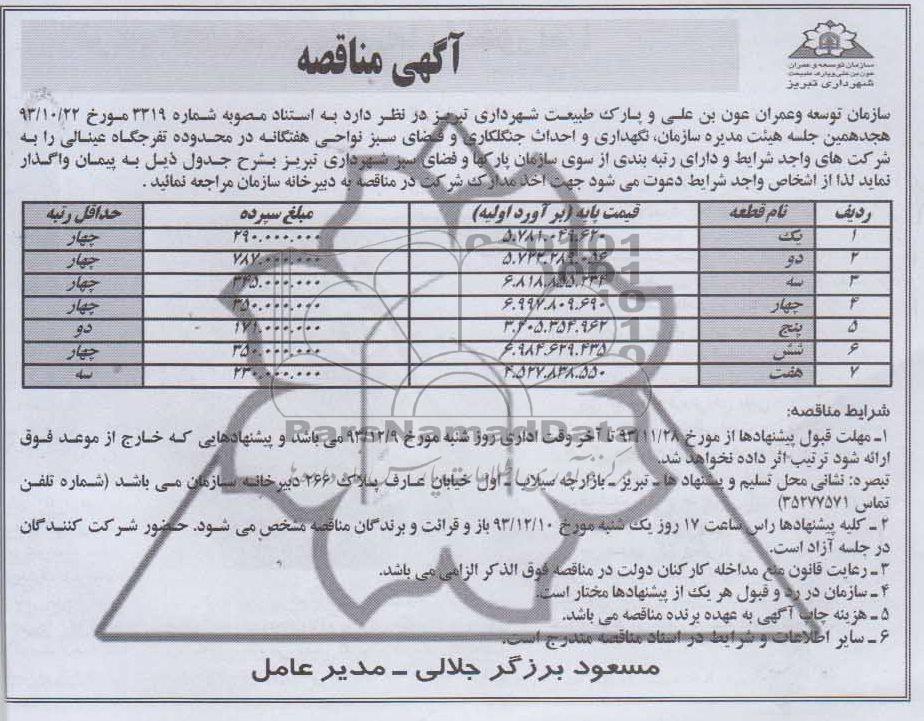 سازمان توسعه و عمران
عون بن علی و پارک طبیعت
شهرداری تبریز
آگهی مناقصه
سازمان توسعه وعمران عون بن علی و پارک طبیعت شهرداری تبریز در نظر دارد به استناد مصوبه شماره ۳۳۱۹ مورخ ۹۳/۱۰/۲۲
هجدهمین جلسه هیئت مدیره سازمان، نگهداری و احداث جنگلکاری و فضای سبز نواحی هفتگانه در محدوده تفرجگاه عینالی را به
شرکت های واجد شرایط و دارای رتبه بندی از سوی سازمان پارکها و فضای سبز شهرداری تبریز بشرح جدول ذیل به پیمان واگذار
نماید لذا از اشخاص واجد شرایط دعوت می شود جهت اخذ مدارک شرکت در مناقصه به دبیرخانه سازمان مراجعه نمائید .
ردیف نام قطعه قیمت پایه (برآورد اولیه) مبلغ سپرده حداقل رتبه
۱ یک ۵.۷۸۱.۰۴۹.۶۲۰ ۲۹۰.۰۰۰.۰۰۰ چهار
۲ دو ۵.۷۲۲.۲۸۹.۰۵۶ ۷۸۷.۰۰۰.۰۰۰ چهار
۳ سه ۶.۸۱۸.۸۵۵.۲۳۴ ۳۴۵.۰۰۰.۰۰۰ چهار
۴ چهار ۶.۹۹۷.۸۰۹.۶۹۰ ۳۵۰.۰۰۰.۰۰۰ چهار
۵ پنج ۳.۴۰۵.۳۵۴.۹۶۲ ۱۷۱.۰۰۰.۰۰۰ دو
۶ شش ۶.۹۸۴.۶۲۹.۴۳۵ ۳۵۰.۰۰۰.۰۰۰ چهار
۷ هفت ۴.۵۲۷.۸۳۸.۵۵۰ ۲۳۰.۰۰۰.۰۰۰ سه
شرایط مناقصه:
۱ـ مهلت قبول پیشنهادها از مورخ ۹۳/۱۱/۲۸ تا آخر وقت اداری روز شنبه مورخ ۹۳/۱۲/۹ می باشد و پیشنهادهایی که خارج از موعد فوق
ارائه شود ترتیب اثر داده نخواهد شد.
ParsNamadData
تبصره: نشانی محل تسلیم و پیشنهاد ها ـ تبریز ـ بازارچه سیلاب ـ اول خیابان عارف پلاک ۲۶۶ دبیرخانه سازمان می باشد (شماره تلفن
تماس ۳۵۲۷۷۵۷۱)
۲ ـ کلیه پیشنهادها راس ساعت ۱۷ روز یک شنبه مورخ ۹۳/۱۲/۱۰ باز و قرائت و برندگان مناقصه مشخص می شود. حضور شرکت کنندگان
در جلسه آزاد است.
۳ ـ رعایت قانون منع مداخله کارکنان دولت در مناقصه فوق الذکر الزامی می باشد.
۴ ـ سازمان در رد و قبول هر یک از پیشنهادها مختار است.
۵ ـ هزینه چاپ آگهی به عهده برنده مناقصه می باشد.
۶ ـ سایر اطلاعات و شرایط در اسناد مناقصه مندرج است.
مسعود برزگر جلالی ـ مدیر عامل